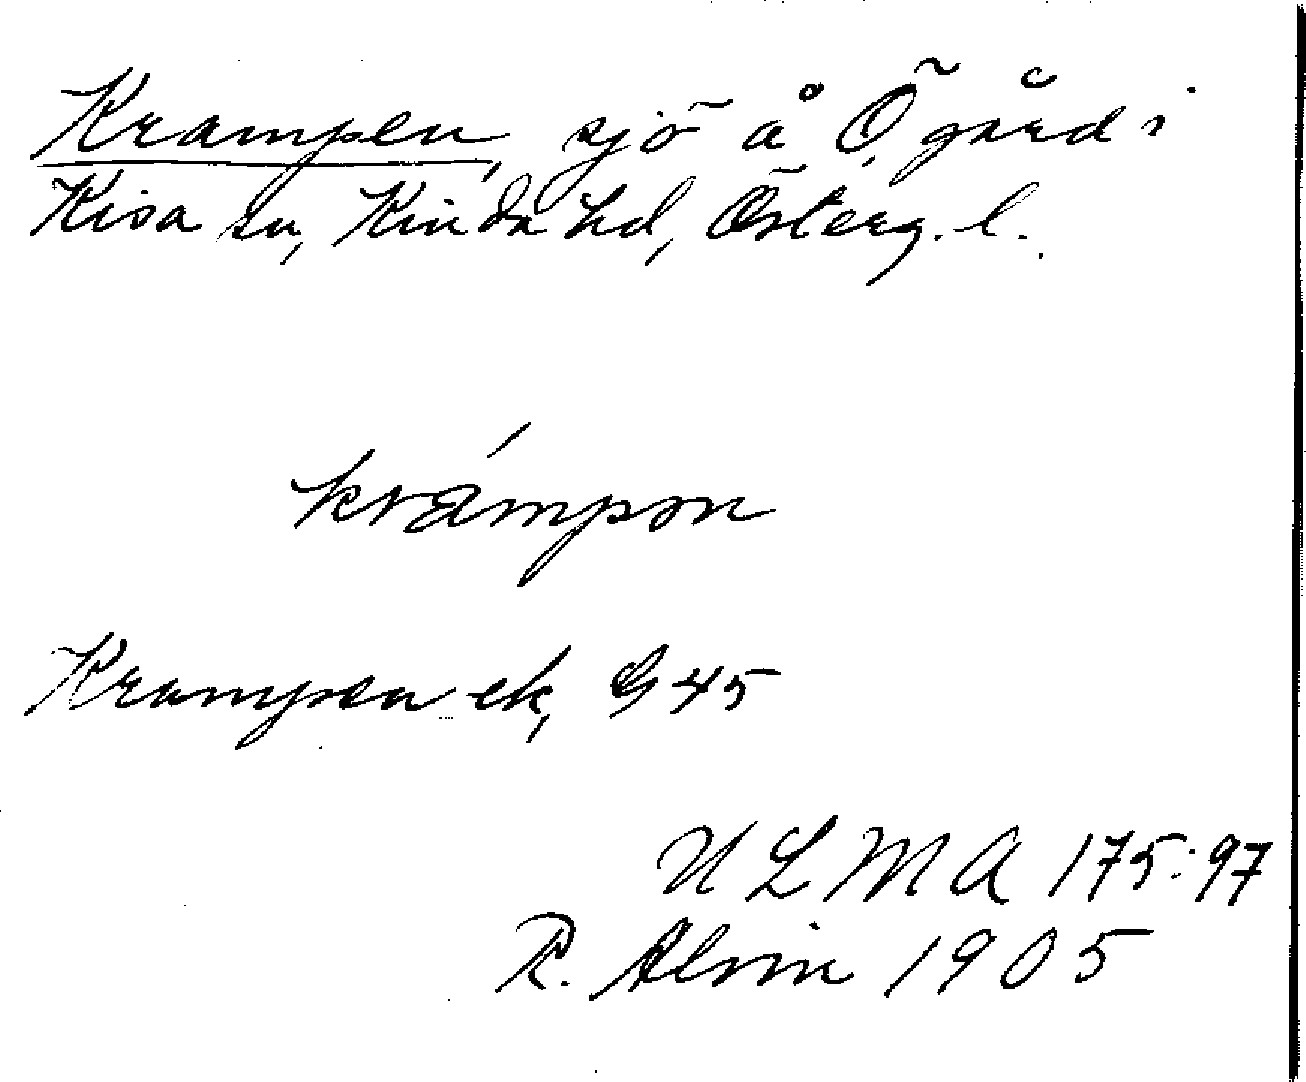 Krampen, sjö å Ögård i
Kisa sn, Kinda hd, Österg. l.
krámpən
Krampen ek, G 45
ULMA 175:97
R. Alvin 1905